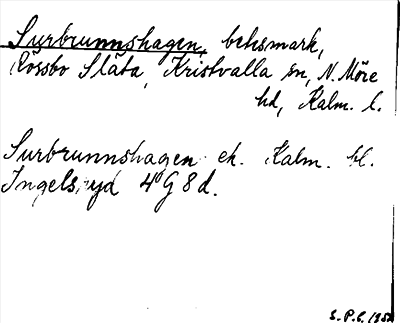 Surbrunnshagen, behsmark,
Rössbo Slāta, Kristvalla sn, N. Möre
hd, Kalm. l.
Surbrunnshagen ek. Kalm. bl.
Ingelsryd 4G8d.
S.P.C. 195